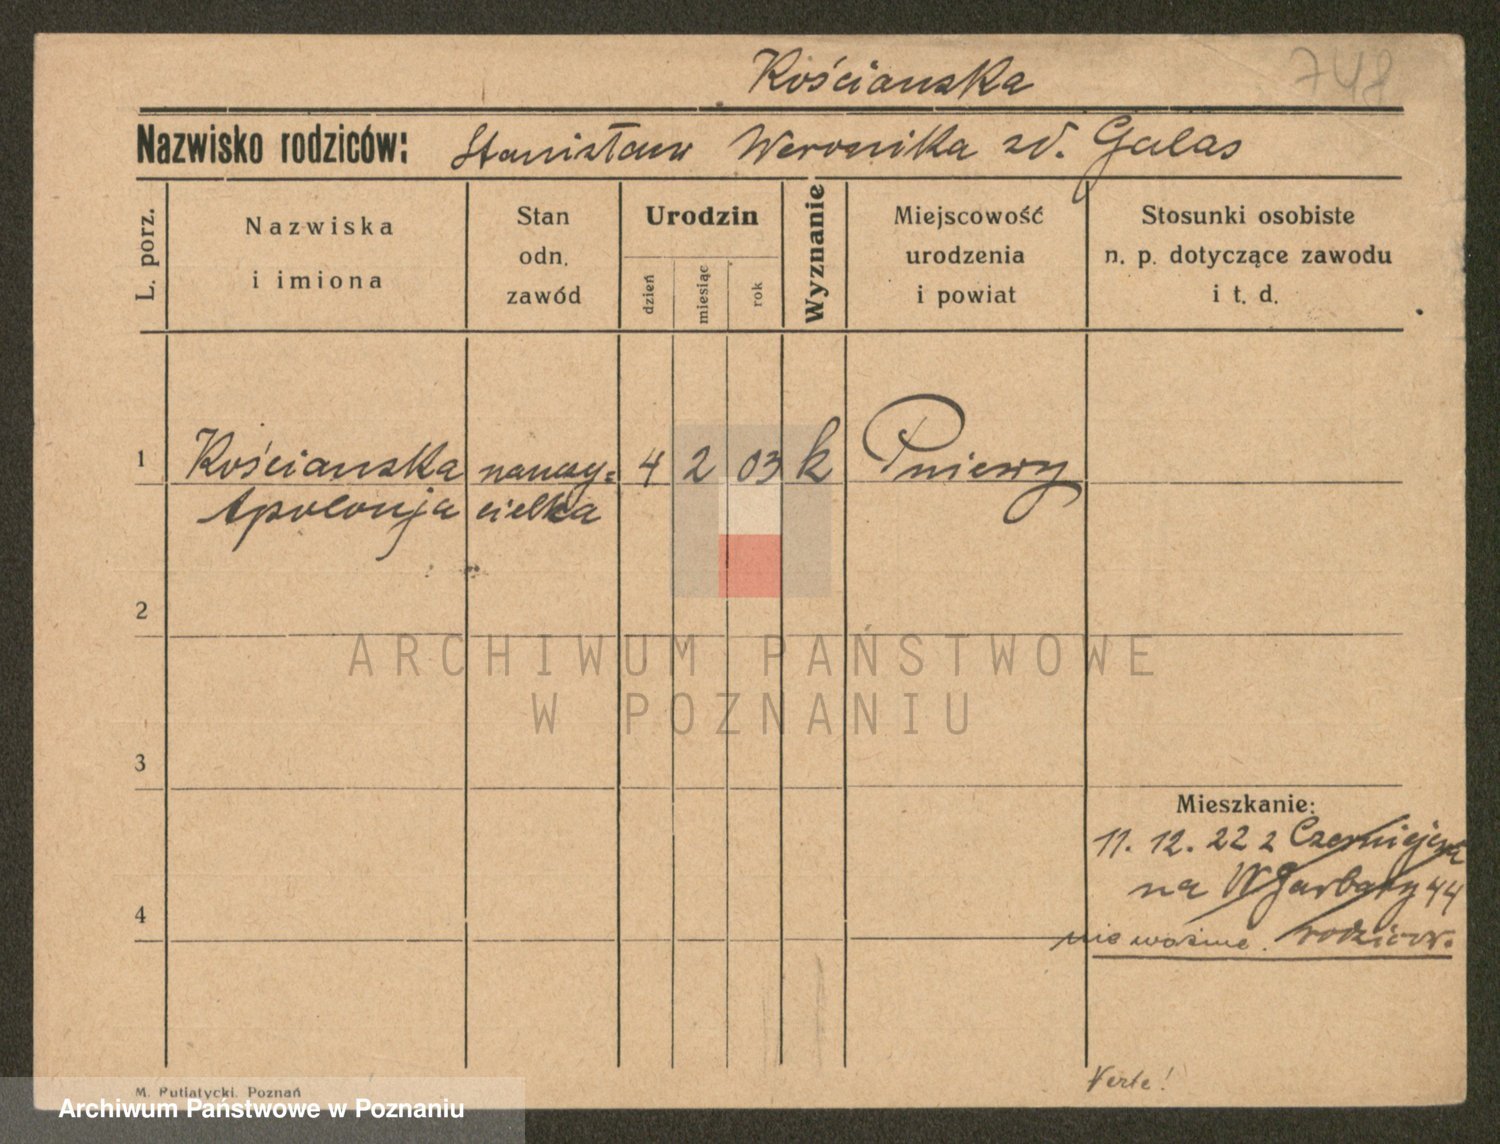 Kościanska 748
Nazwisko rodziców: Stanisław Weronika zd. Galas
L. porz.
Nazwiska
i imiona
Stan
odn.
zawód
Urodzin
dzień
miesiąc
rok
Wyznanie
Miejscowość
urodzenia
i powiat
Stosunki osobiste
n. p. dotyczące zawodu
i t. d.
1 Kościanska nauczy= 4 2 03 k Pniewy
Apolonja cielka
2
ARCHIWUM PAŃSTWOWE
W POZNANIU
3
Mieszkanie:
11. 12. 22 z Czerniejewa
na W Garbary 44
4
nie ważne. rodziców.
Verte!
M. Putiatycki, Poznań
Archiwum Państwowe w Poznaniu